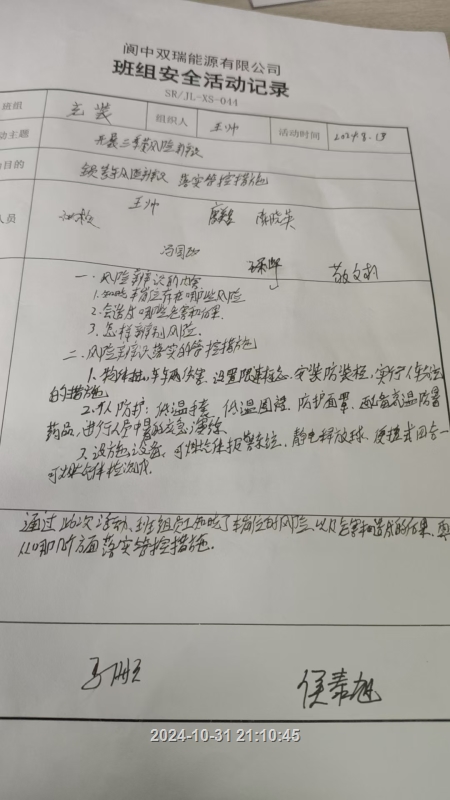 阆中双瑞能源有限公司
班组安全活动记录
SR/JL-XS-044
班组 充装 组织人 王帅 活动时间 2024.8.19
动主题 开展三季度风险辨识
目的 落实管控措施
人员 王帅
一、风险辨识的内容
1.知晓本岗位存在哪些风险
2.会造成哪些危害和后果
3.怎样辨别风险
二、风险辨识落实的管控措施
1.物体打击,车辆伤害,设置限速标志,安装防装栏,实行人车分流
的措施
2.个人防护:低温手套,低温围裙,防护面罩,配备高温防暑
药品,进行人员中暑的应急演练
3.设施设备:可燃气体报警系统,静电释放球,便携式四合一
可燃气体检测仪
通过此次活动,班组员工知晓了本岗位的风险,以及危害和造成的后果,
从哪几方面落实管控措施.
2024-10-31 21:10:45